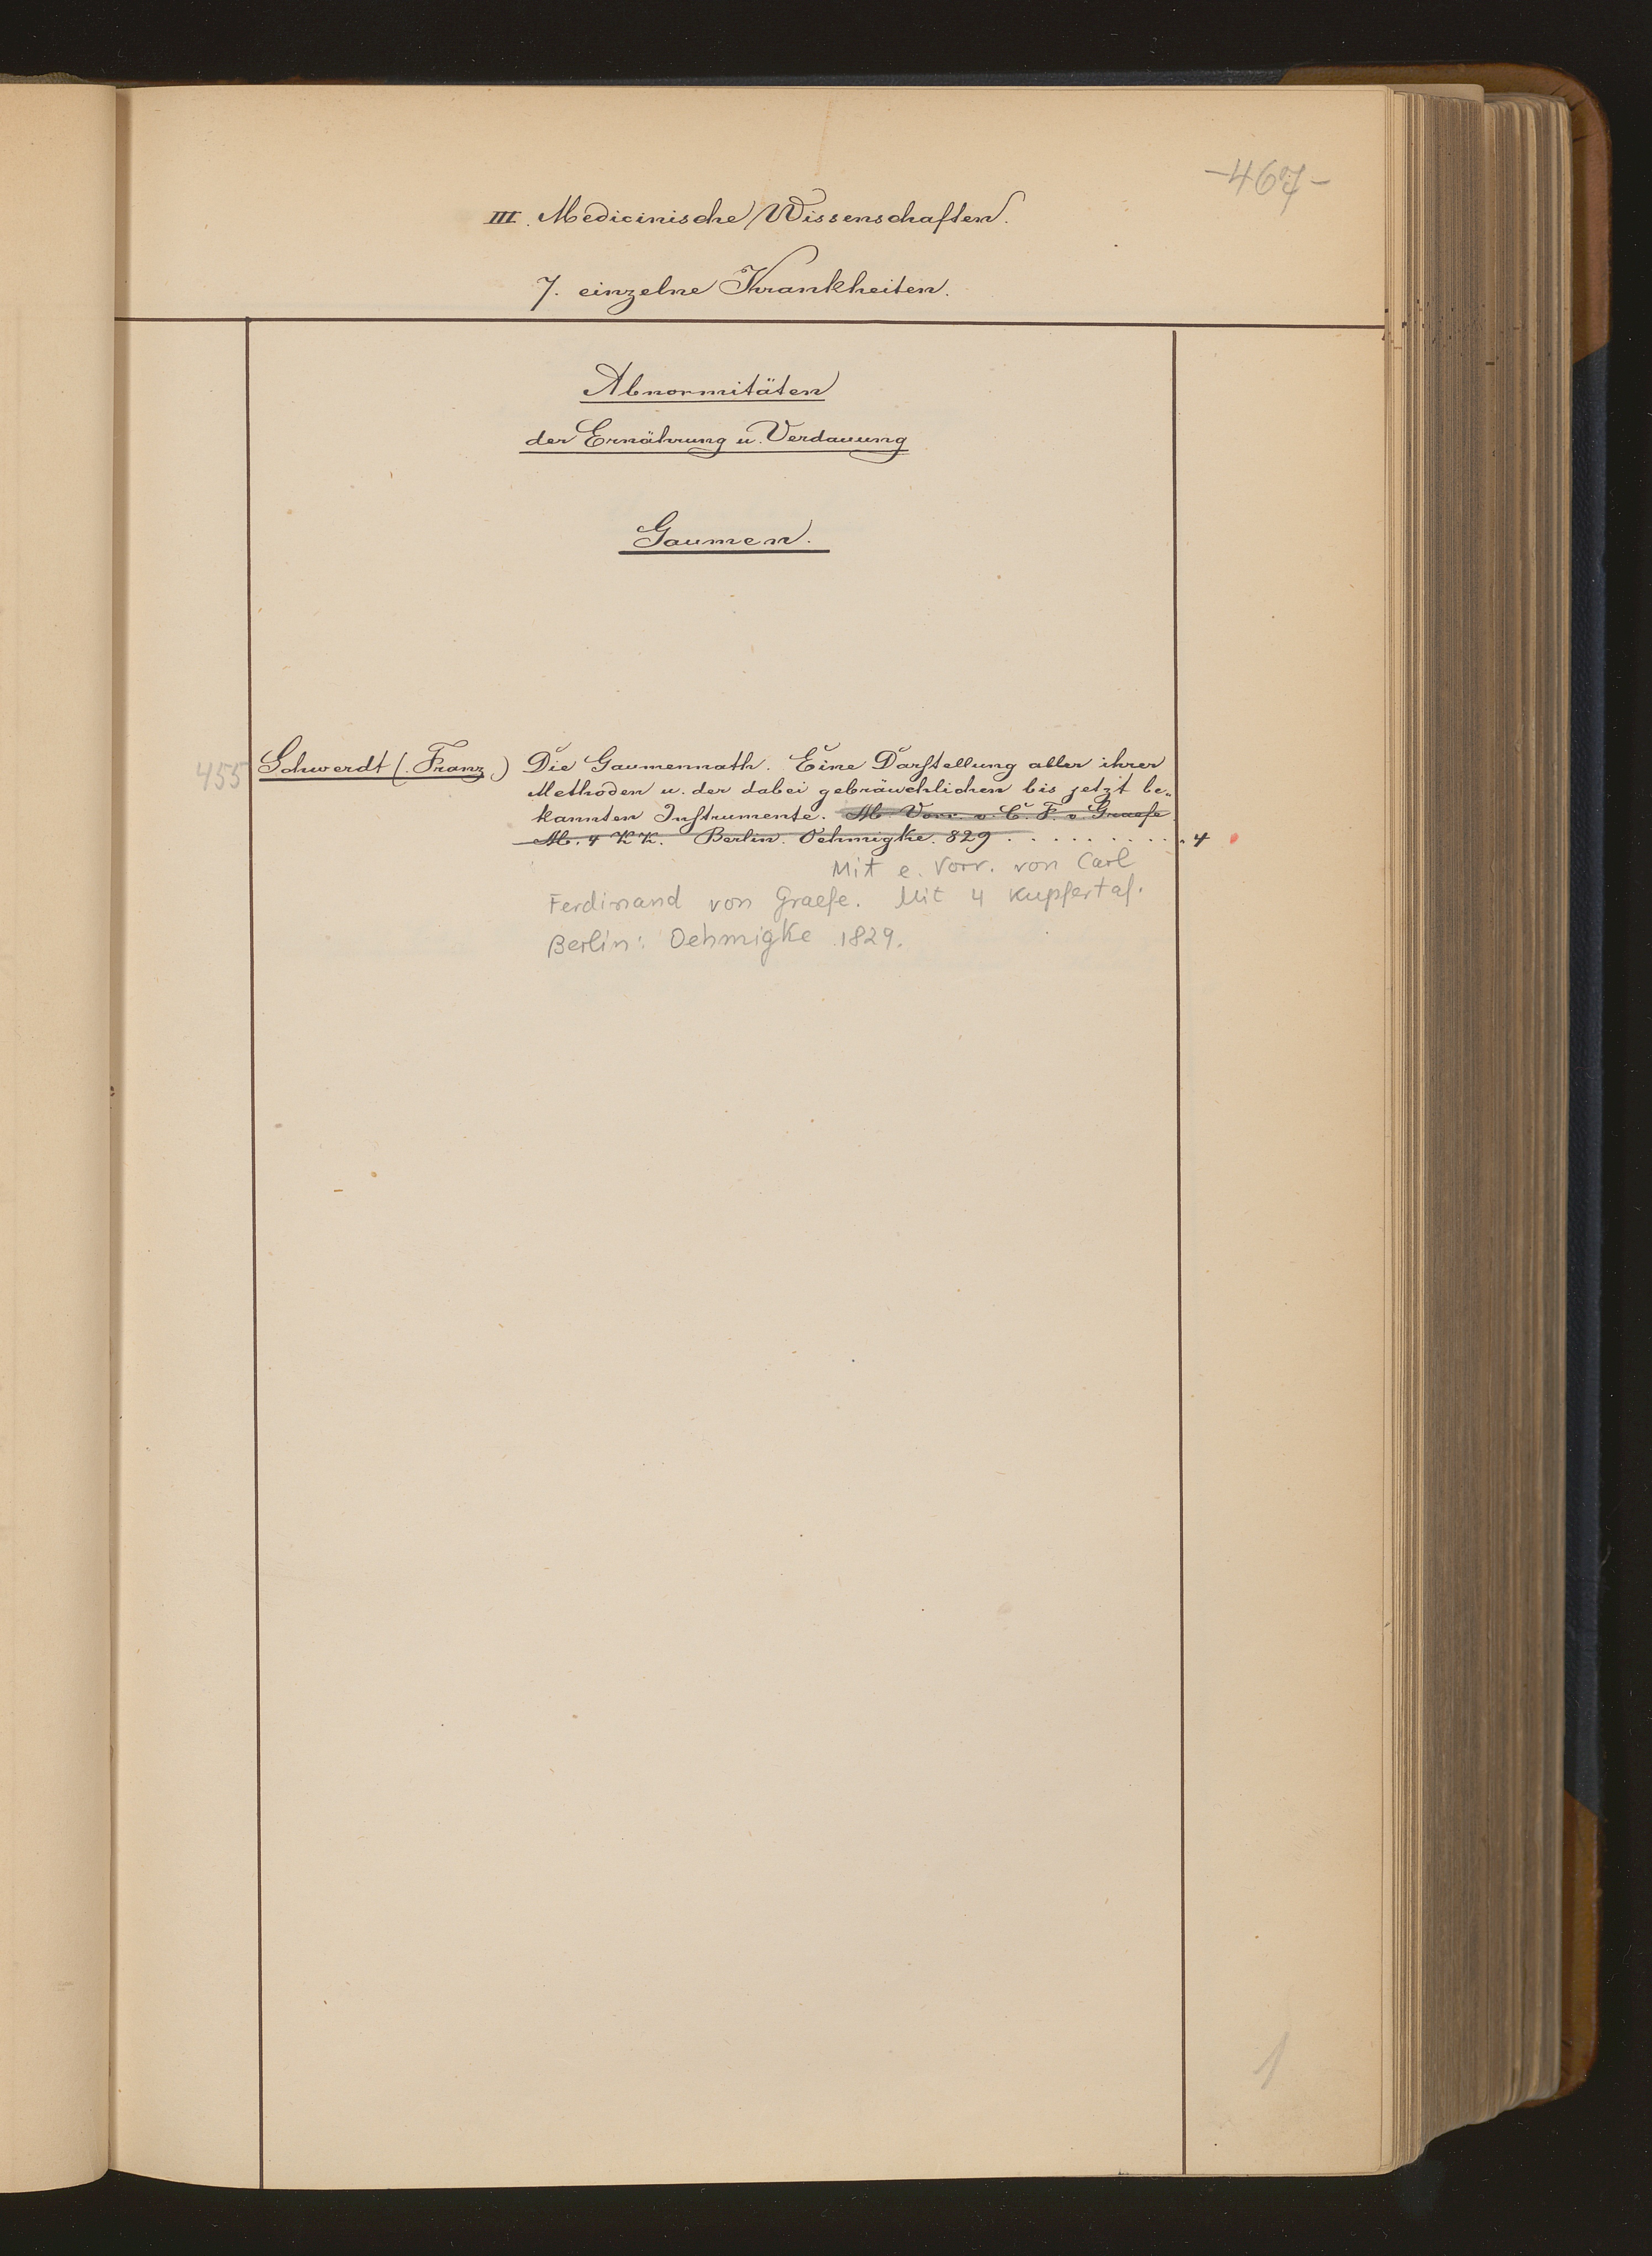 -467-
III. Medicinische Wissenschaften.
7. einzelne Krankheiten.
Abnormitäten
der Ernährung u. Verdauung
Gaumen.
455 Schwerdt (Franz) Die Gaumennath. Eine Darstellung aller ihrer
Methoden u. der dabei gebräuchlichen bis jetzt be-
kannten Instrumente. M. Vorr. v. C. F. v. Graefe
M. 4 KK. Berlin. Oehmigke. 829 . . . . . . . . . . 4
Mit e. Vorr. von Carl
Ferdinand von Graefe. Mit 4 Kupfertaf.
Berlin: Oehmigke 1829.
1